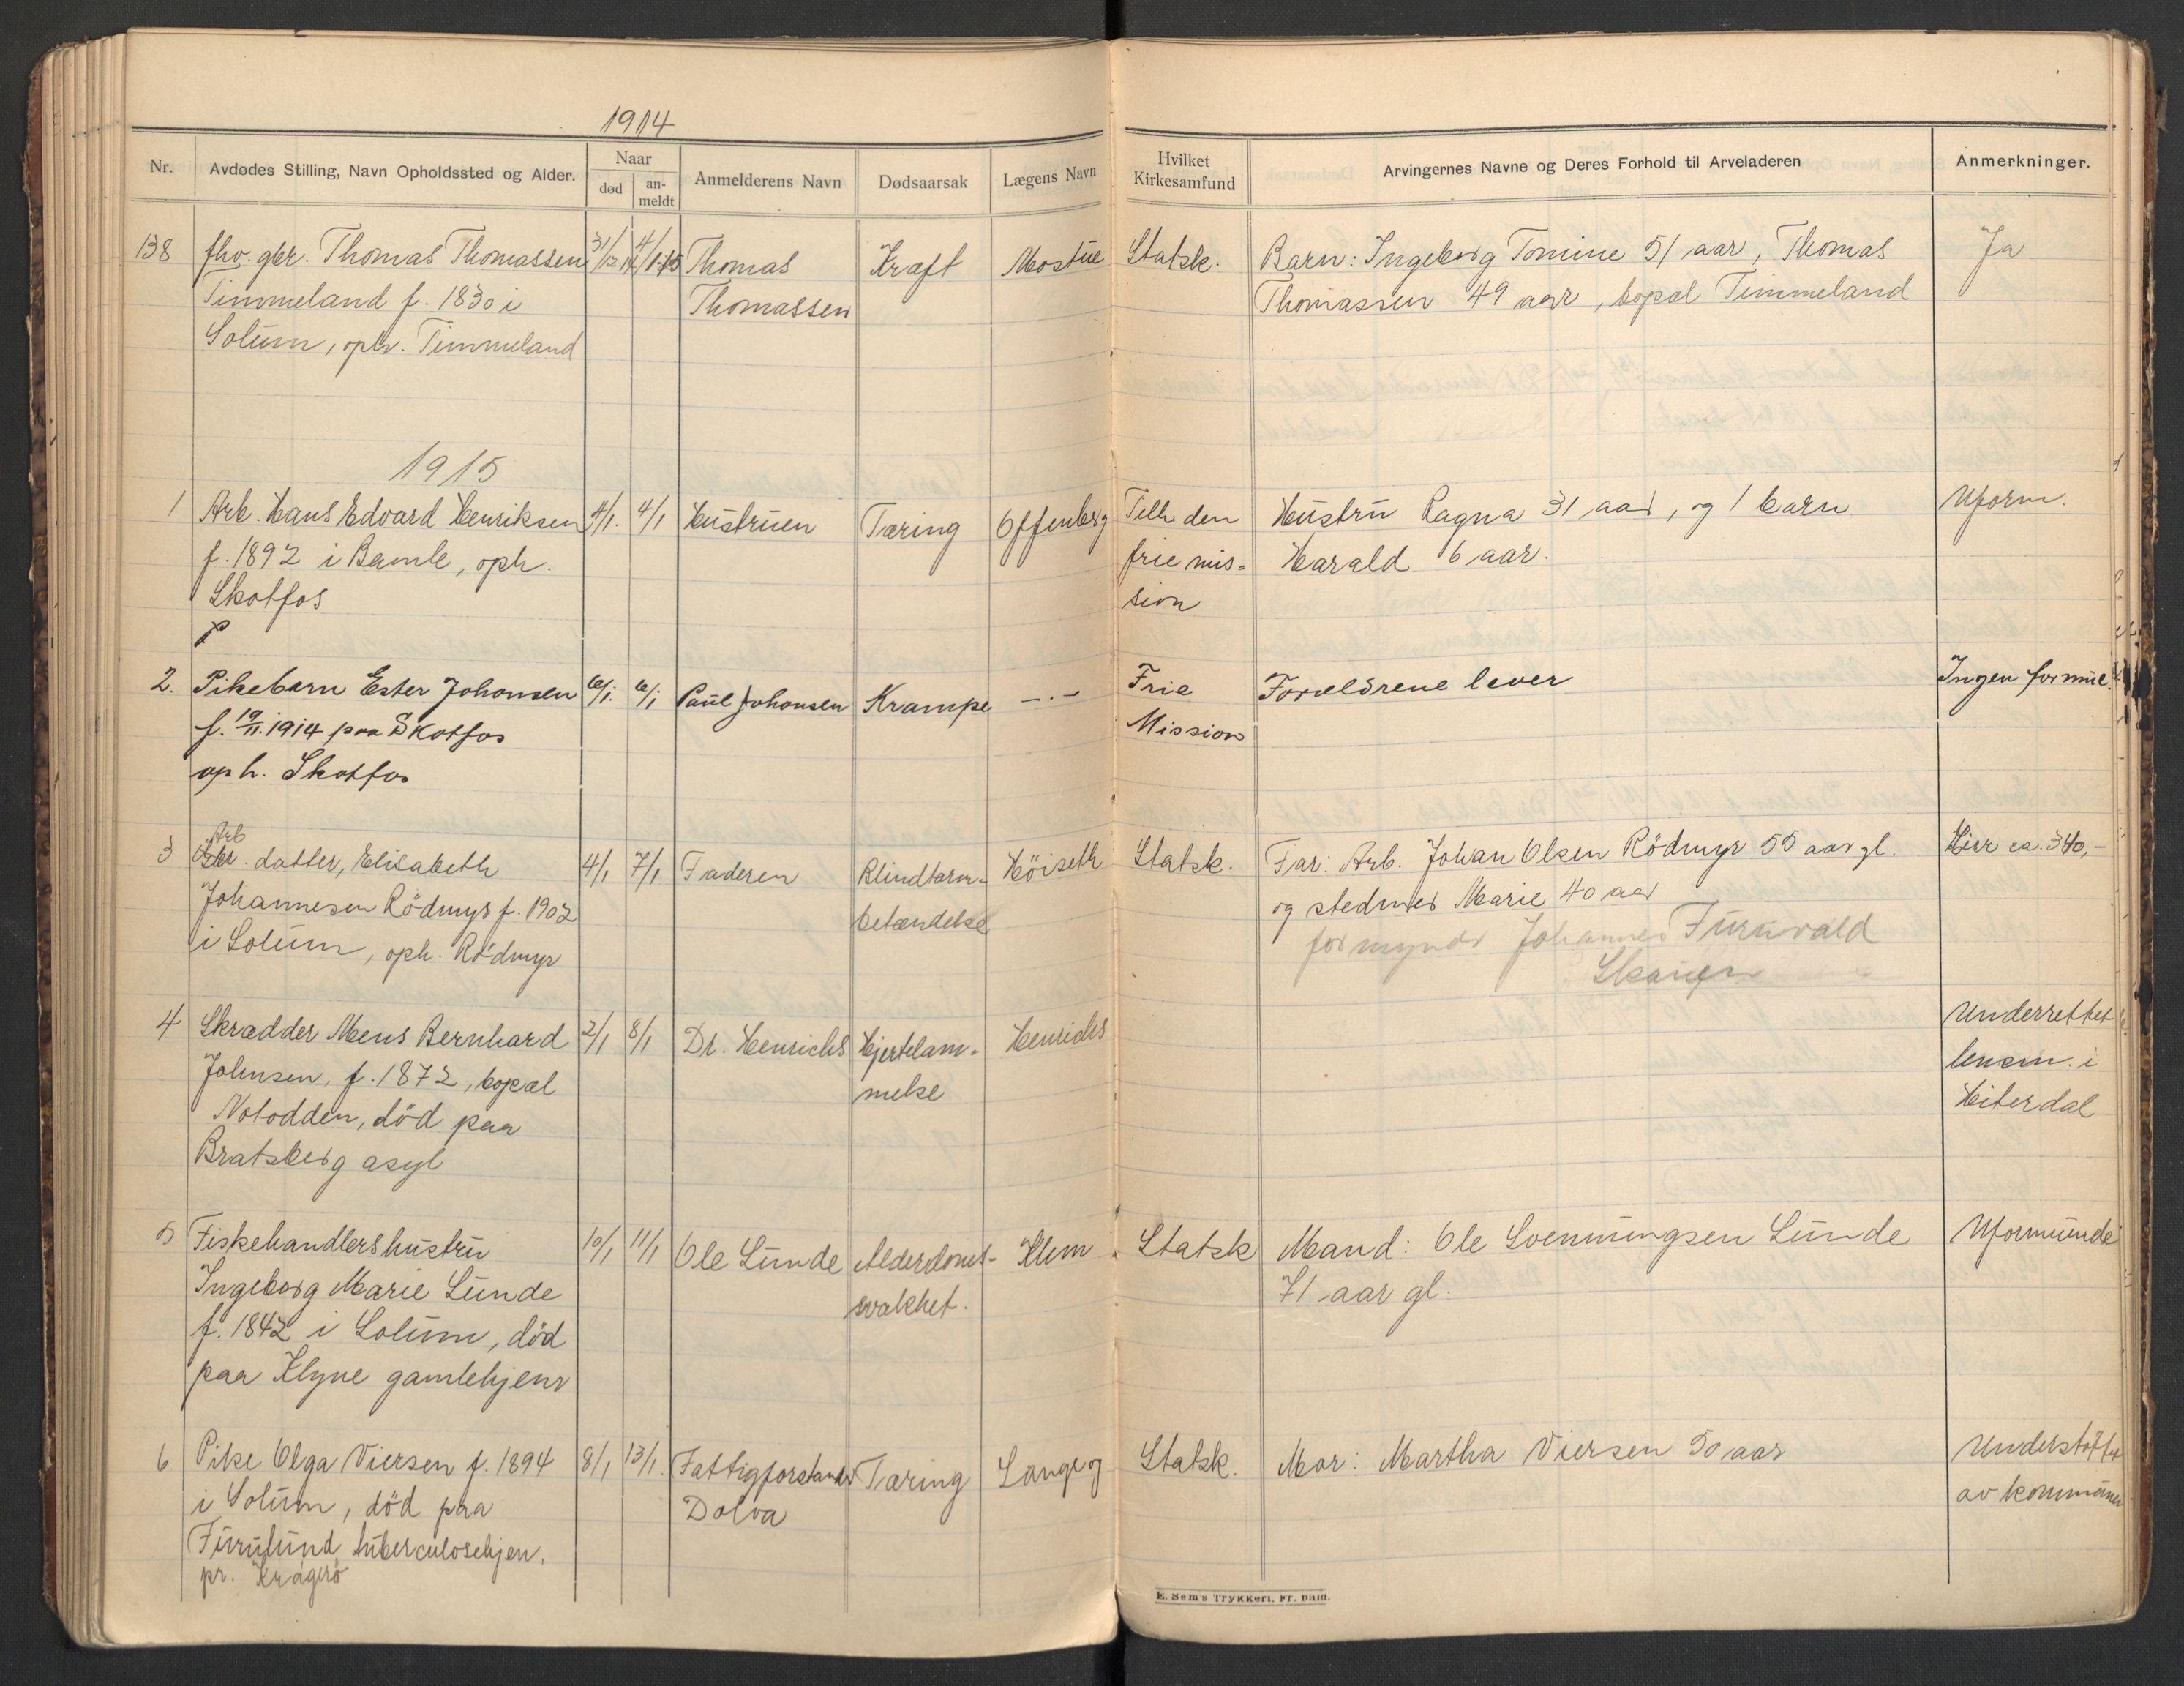 1914
Nr.
Avdødes Stilling, Navn Opholdssted og Alder.
Naar
død
an-
meldt
Anmelderens Navn
Dødsaarsak
Lægens Navn
Hvilket
Kirkesamfund
Arvingernes Navne og Deres Forhold til Arveladeren
Anmerkninger.
138 fhv. gbr. Thomas Thomassen 31/12 14 4/1-15 Thomas Kræft Mostue Statsk. Barn: Ingeborg Tomine 51 aar, Thomas Ja
Timmeland f. 1830 i Thomassen Thomassen 49 aar, bopæl Timmeland
Solum, oph. Timmeland
1915
1 Arb. Hans Edvard Henriksen 4/1. 4/1 Hustruen Tæring Offenberg Tilh. den Hustru Ragna 31 aar, og 1 barn Uform.
f. 1892 i Bamle, oph. frie mis- Harald 6 aar.
Skotfos sion
2. Pikebarn Ester Johansen 6/1. 6/1 Paul Johansen Krampe -.- Frie Forældrene lever Ingen formue.
f. 19/11.1914 paa Skotfos Mission
oph. Skotfos
Arb
3 Gbr. datter, Elisabeth 4/1 7/1 Faderen Blindtarm- Höiseth Statsk. Far: Arb. Johan Olsen Rödmyr 55 aar gl. Hier ca. 340,-
Johannesen Rödmyr f. 1902 betændelse og stedmor Marie 40 aar
i Solum, oph. Rödmyr formynder Johannes Furuvald
Skauen
4 Skrædder Mens Bernhard 2/1 8/1 Dr. Henrichs Hjertelam- Henrichs Underrettet
Johnsen, f. 1872, bopæl melse lensm. i
Notodden, död paa Hiterdal
Bratsberg asyl
5 Fiskehandlershustru 10/1 11/1 Ole Lunde Alderdoms- Klem Statsk Mand: Ole Svenningsen Lunde Uformuende
Ingeborg Marie Lunde svakhet. 71 aar gl.
f. 1842 i Solum, död
paa Klyve gamlehjem
6 Pike Olga Viersen f. 1894 8/1 13/1. Fattigforstander Tæring Lange og Statsk. Mor: Martha Viersen 50 aar Understöttet
i Solum, död paa Dolva av kommunen
Furulund tuberculosehjem,
pr. Kragerö
E. Sem's Trykkeri, Fr.hald.